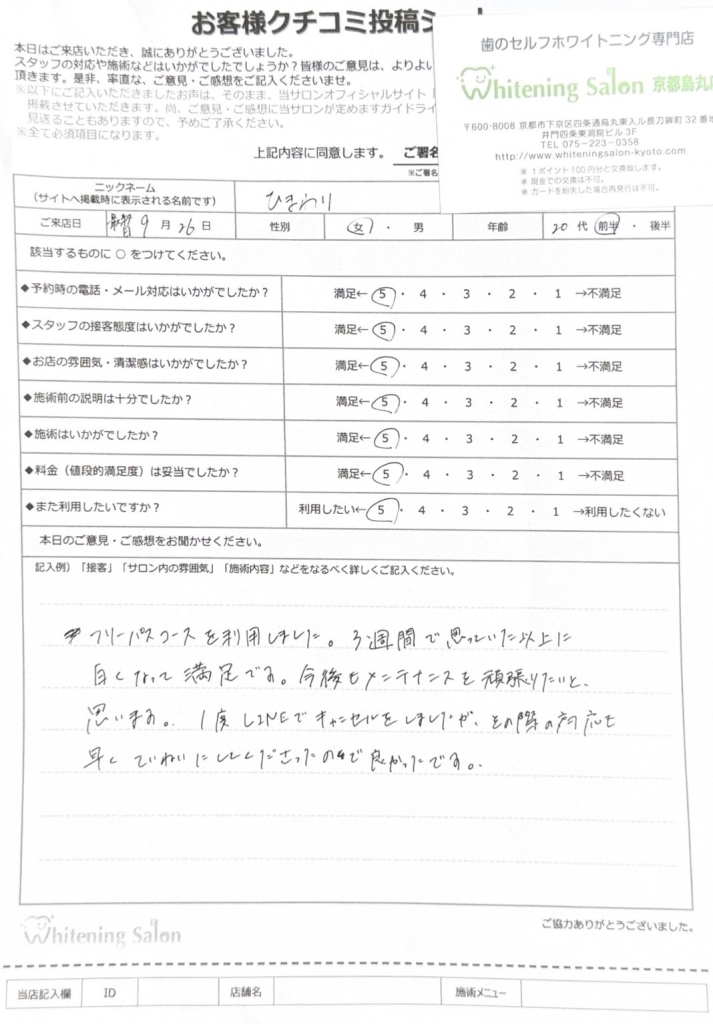 お客様クチコミ投稿シ
本日はご来店いただき、誠にありがとうございました。
スタッフの対応や施術などはいかがでしたでしょうか？皆様のご意見は、よりよい
頂きます。是非、率直な、ご意見・ご感想をご記入くださいませ。
※以下にご記入いただきましたお声は、そのまま、当サロンオフィシャルサイト「
掲載させていただきます。尚、ご意見・ご感想に当サロンが定めますガイドライ
見送ることもありますので、予めご了承ください。
※全て必須項目になります。
上記内容に同意します。 ご署名
※ご署名
歯のセルフホワイトニング専門店
Whitening Salon 京都烏丸
〒600-8008 京都市下京区四条通烏丸東入ル長刀鉾町 32 番地
井門四条東洞院ビル 3F
TEL 075-223-0358
http://www.whiteningsalon-kyoto.com
※ 1ポイント100円分と交換致します。
※ 現金での交換は不可。
※ カードを紛失した場合再発行は不可。
ニックネーム
（サイトへ掲載時に表示される名前です） ひきわり
ご来店日 9 月 26 日 性別 女 ・ 男 年齢 20 代 前半 ・ 後半
該当するものに ○ をつけてください。
◆予約時の電話・メール対応はいかがでしたか？ 満足← 5 ・ 4 ・ 3 ・ 2 ・ 1 →不満足
◆スタッフの接客態度はいかがでしたか？ 満足← 5 ・ 4 ・ 3 ・ 2 ・ 1 →不満足
◆お店の雰囲気・清潔感はいかがでしたか？ 満足← 5 ・ 4 ・ 3 ・ 2 ・ 1 →不満足
◆施術前の説明は十分でしたか？ 満足← 5 ・ 4 ・ 3 ・ 2 ・ 1 →不満足
◆施術はいかがでしたか？ 満足← 5 ・ 4 ・ 3 ・ 2 ・ 1 →不満足
◆料金（値段的満足度）は妥当でしたか？ 満足← 5 ・ 4 ・ 3 ・ 2 ・ 1 →不満足
◆また利用したいですか？ 利用したい← 5 ・ 4 ・ 3 ・ 2 ・ 1 →利用したくない
本日のご意見・ご感想をお聞かせください。
記入例）「接客」「サロン内の雰囲気」「施術内容」などをなるべく詳しくご記入ください。
フリーパスコースを利用しました。3週間で思っていた以上に
白くなって満足です。今後もメンテナンスを頑張りたいと、
思います。1度LINEでキャンセルをしましたが、その際の対応も
早くていねいにしてくださったので良かったです。
Whitening Salon
ご協力ありがとうございました。
当店記入欄 ID 店舗名 施術メニュー